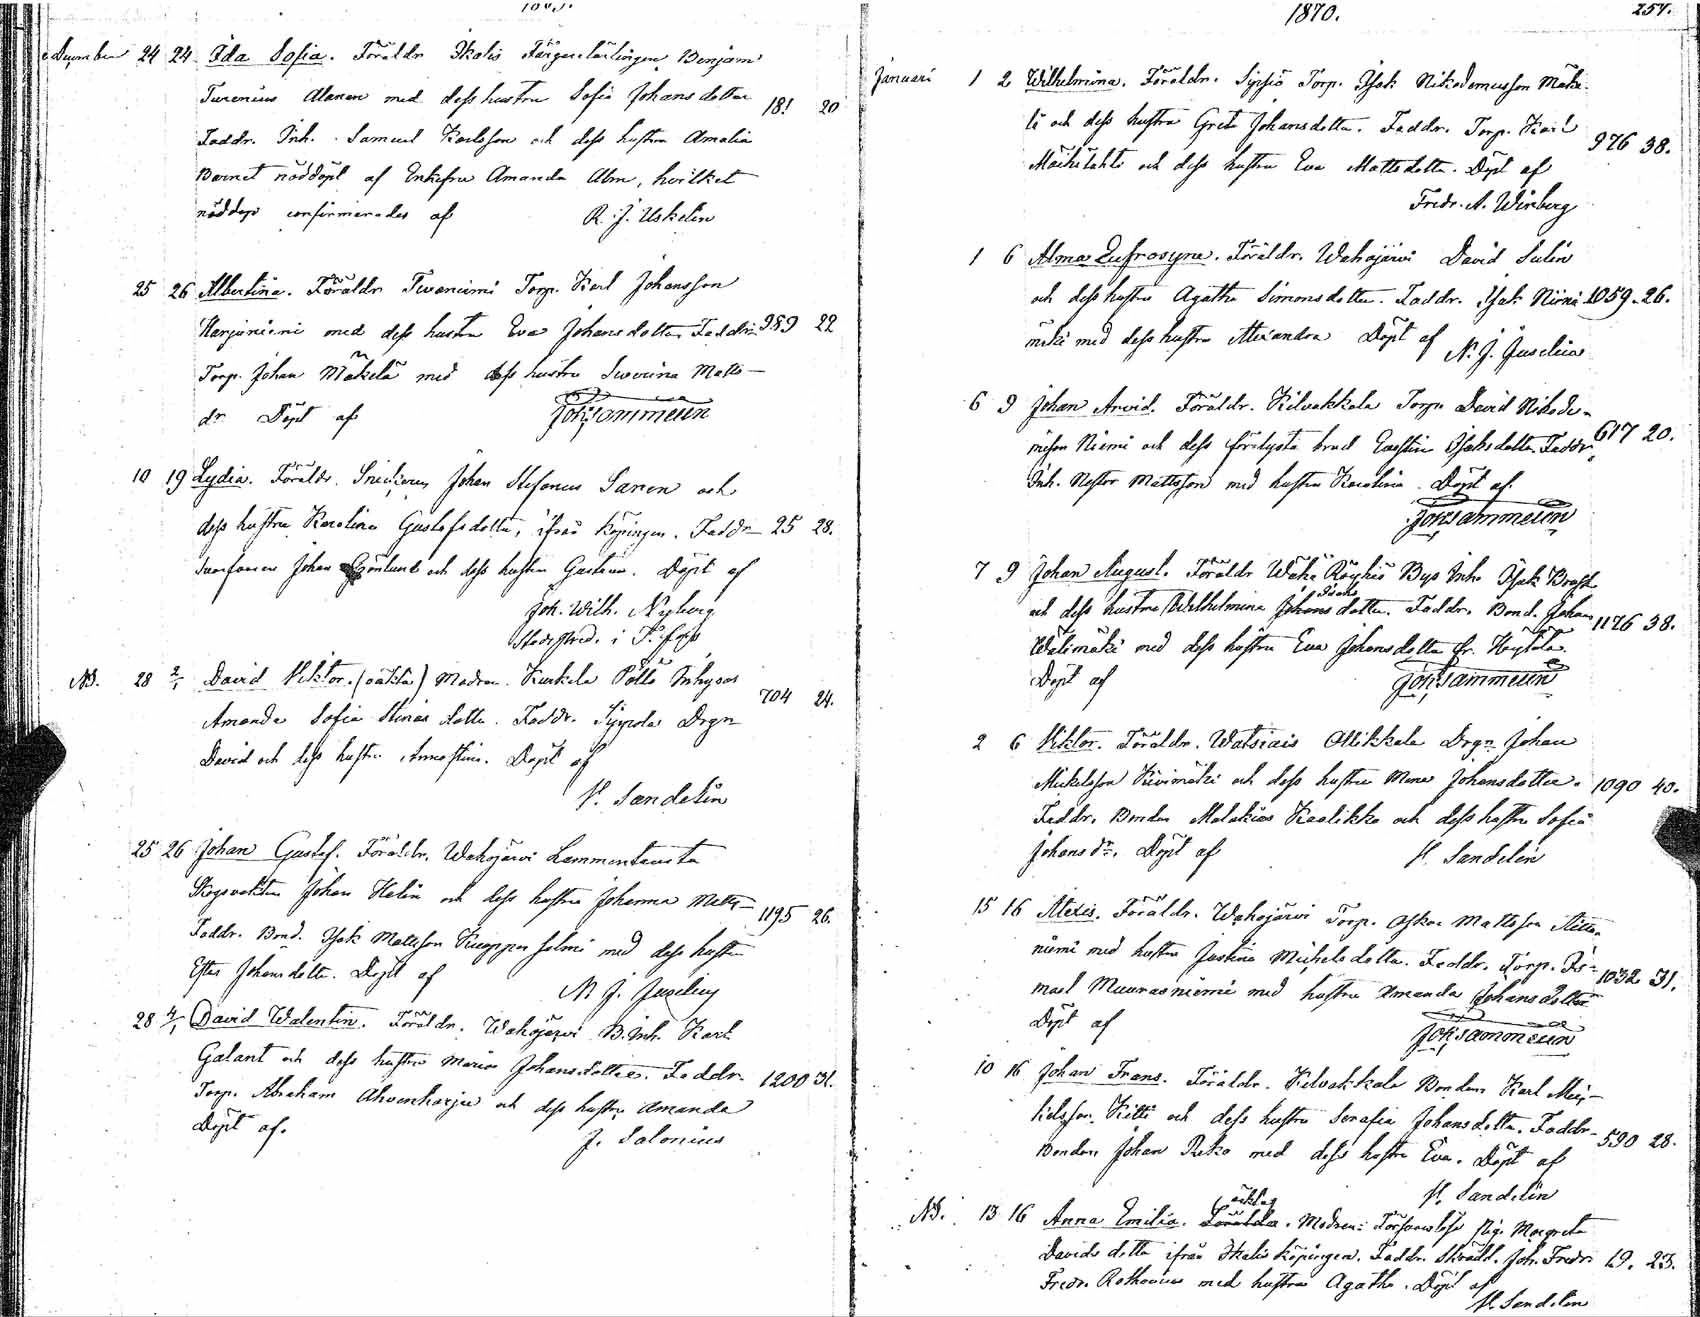 December 24 24 Ida Sofia. Föräldr. Ikalis Färgarelärlingen Benjam.
Turenius Alanen med dess hustru Sofia Johansdotter 181 20
Faddr. Inh. Samuel Karlsson och dess hustru Amalia
Barnet nöddöpt af Enkefru Amanda Alm, hvilket
nöddop confirmerades af R. J. Uskelin
25 26 Albertina. Föräldr. Torp. Karl Johansson
Harjuniemi med dess hustru Eva Johansdotter Faddr. 989 22
Torp. Johan Mäkelä med dess hustru Severina Matts-
dr. Döpt af Joh. Sammelin
10 19 Lydia. Föräldr. Snickaren Johan Stefanus Sanen och
dess hustru Karolina Gustafsdotter, ifrån Köpingen. Faddr. 25 28.
Johan Grönlund och dess hustru Gustava. Döpt af
Joh. Wilh. Nyberg
i T:fors
NB. 28 2/1 David Viktor. (oäkta) Modren. Kurkela Pöllö Inhyses
Amanda Sofia dotter. Faddr. Sippola Drgn 704 24.
David och dess hustru Annastina. Döpt af
V. Sandelin
25 26 Johan Gustaf. Föräldr. Wahojärvi Lammentausta
Skogsvakten Johan Helin och dess hustru Johanna Matts- 1195 26.
Faddr. Bond. Isak Mattsson Kuoppasalmi med dess hustru
Ester Johansdotter. Döpt af N. J. Juselius
28 4/1 David Walentin. Föräldr. Wahojärvi B. Inh. Karl
Galant och dess hustru Maria Johansdotter. Faddr. 1200 31.
Torp. Abraham Ahvenharju och dess hustru Amanda
Döpt af. J. Salonius
1870. 257.
Januari 1 2 Wilhelmina. Föräldr. Sippio Torp. Isak Nikodemusson Mäke-
lä och dess hustru Greta Johansdotter. Faddr. Torp. Karl 976 38.
Mäihilahti och dess hustru Eva Mattsdotter. Döpt af
Fredr. A. Winberg
1 6 Alma Eufrosyne. Föräldr. Wahojärvi David Sulin
och dess hustru Agatha Simonsdotter. Faddr. Isak Niini- 1059. 26.
mäki med dess hustru Alexandra Döpt af N. J. Juselius
6 9 Johan Arvid. Föräldr. Kilvakkala Torp. David Nikode-
musson Niemi och dess förelysta brud Isaksdotter. Faddr. 617 20.
Inh. Nestor Mattsson med hustru Karolina. Döpt af
Joh. Sammelin
7 9 Johan August. Föräldr. Wähä Röyhiö Bys Inh. Isak Brask
och dess hustru Wilhelmina Johans Isaks dotter. Faddr. Bond. Johan 1126 38.
Wälimäki med dess hustru Eva Johansdotter fr. Heittola
Döpt af Joh. Sammelin
2 6 Viktor. Föräldr. Watsiais Ollikkala Drgn Johan
Mickelsson Kivimäki och dess hustru Maria Johansdotter. 1090 40.
Faddr. Bonden Malakias Kaalikko och dess hustru Sofia
Johansdr. Döpt af V. Sandelin
15 16 Alexis. Föräldr. Wahojärvi Torp. Oskar Mattsson
niemi med hustru Justina Michelsdotter. Faddr. Torp. Is- 1032 31.
mael Muurasniemi med hustru Amanda Johansdotter
Döpt af Joh. Sammelin
10 16 Johan Frans. Föräldr. Kilvakkala Bonden Karl Mic-
kelsson Kitti och dess hustru Serafia Johansdotter. Faddr. 590 28.
Bonden Johan Reko med dess hustru Eva. Döpt af
V. Sandelin
NB. 13 16 Anna Emilia. Föräldr. oäkta. Modren: Försvarslösa Pig. Margreta
Davidsdotter ifrån Ikalis köpingen. Faddr. Skrädd. Joh. Fredr. 19. 23.
Fredr. Rothovius med hustru Agatha. Döpt af
V. Sandelin